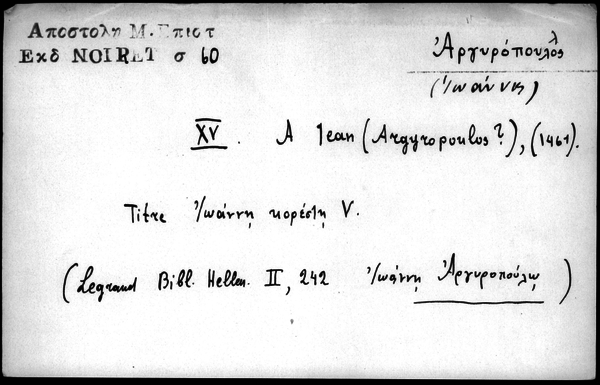 Αποστολη Μ. Επιστ
Εκδ NOIRET σ 60
Ἀργυρόπουλος
(Ἰωάννης)
XV. A Jean (Argyropoulos?), (1461).
Titre Ἰωάννῃ κορέστῃ V.
(Legrand Bibl. Hellen. II, 242 Ἰωάννῃ Ἀργυροπούλῳ)